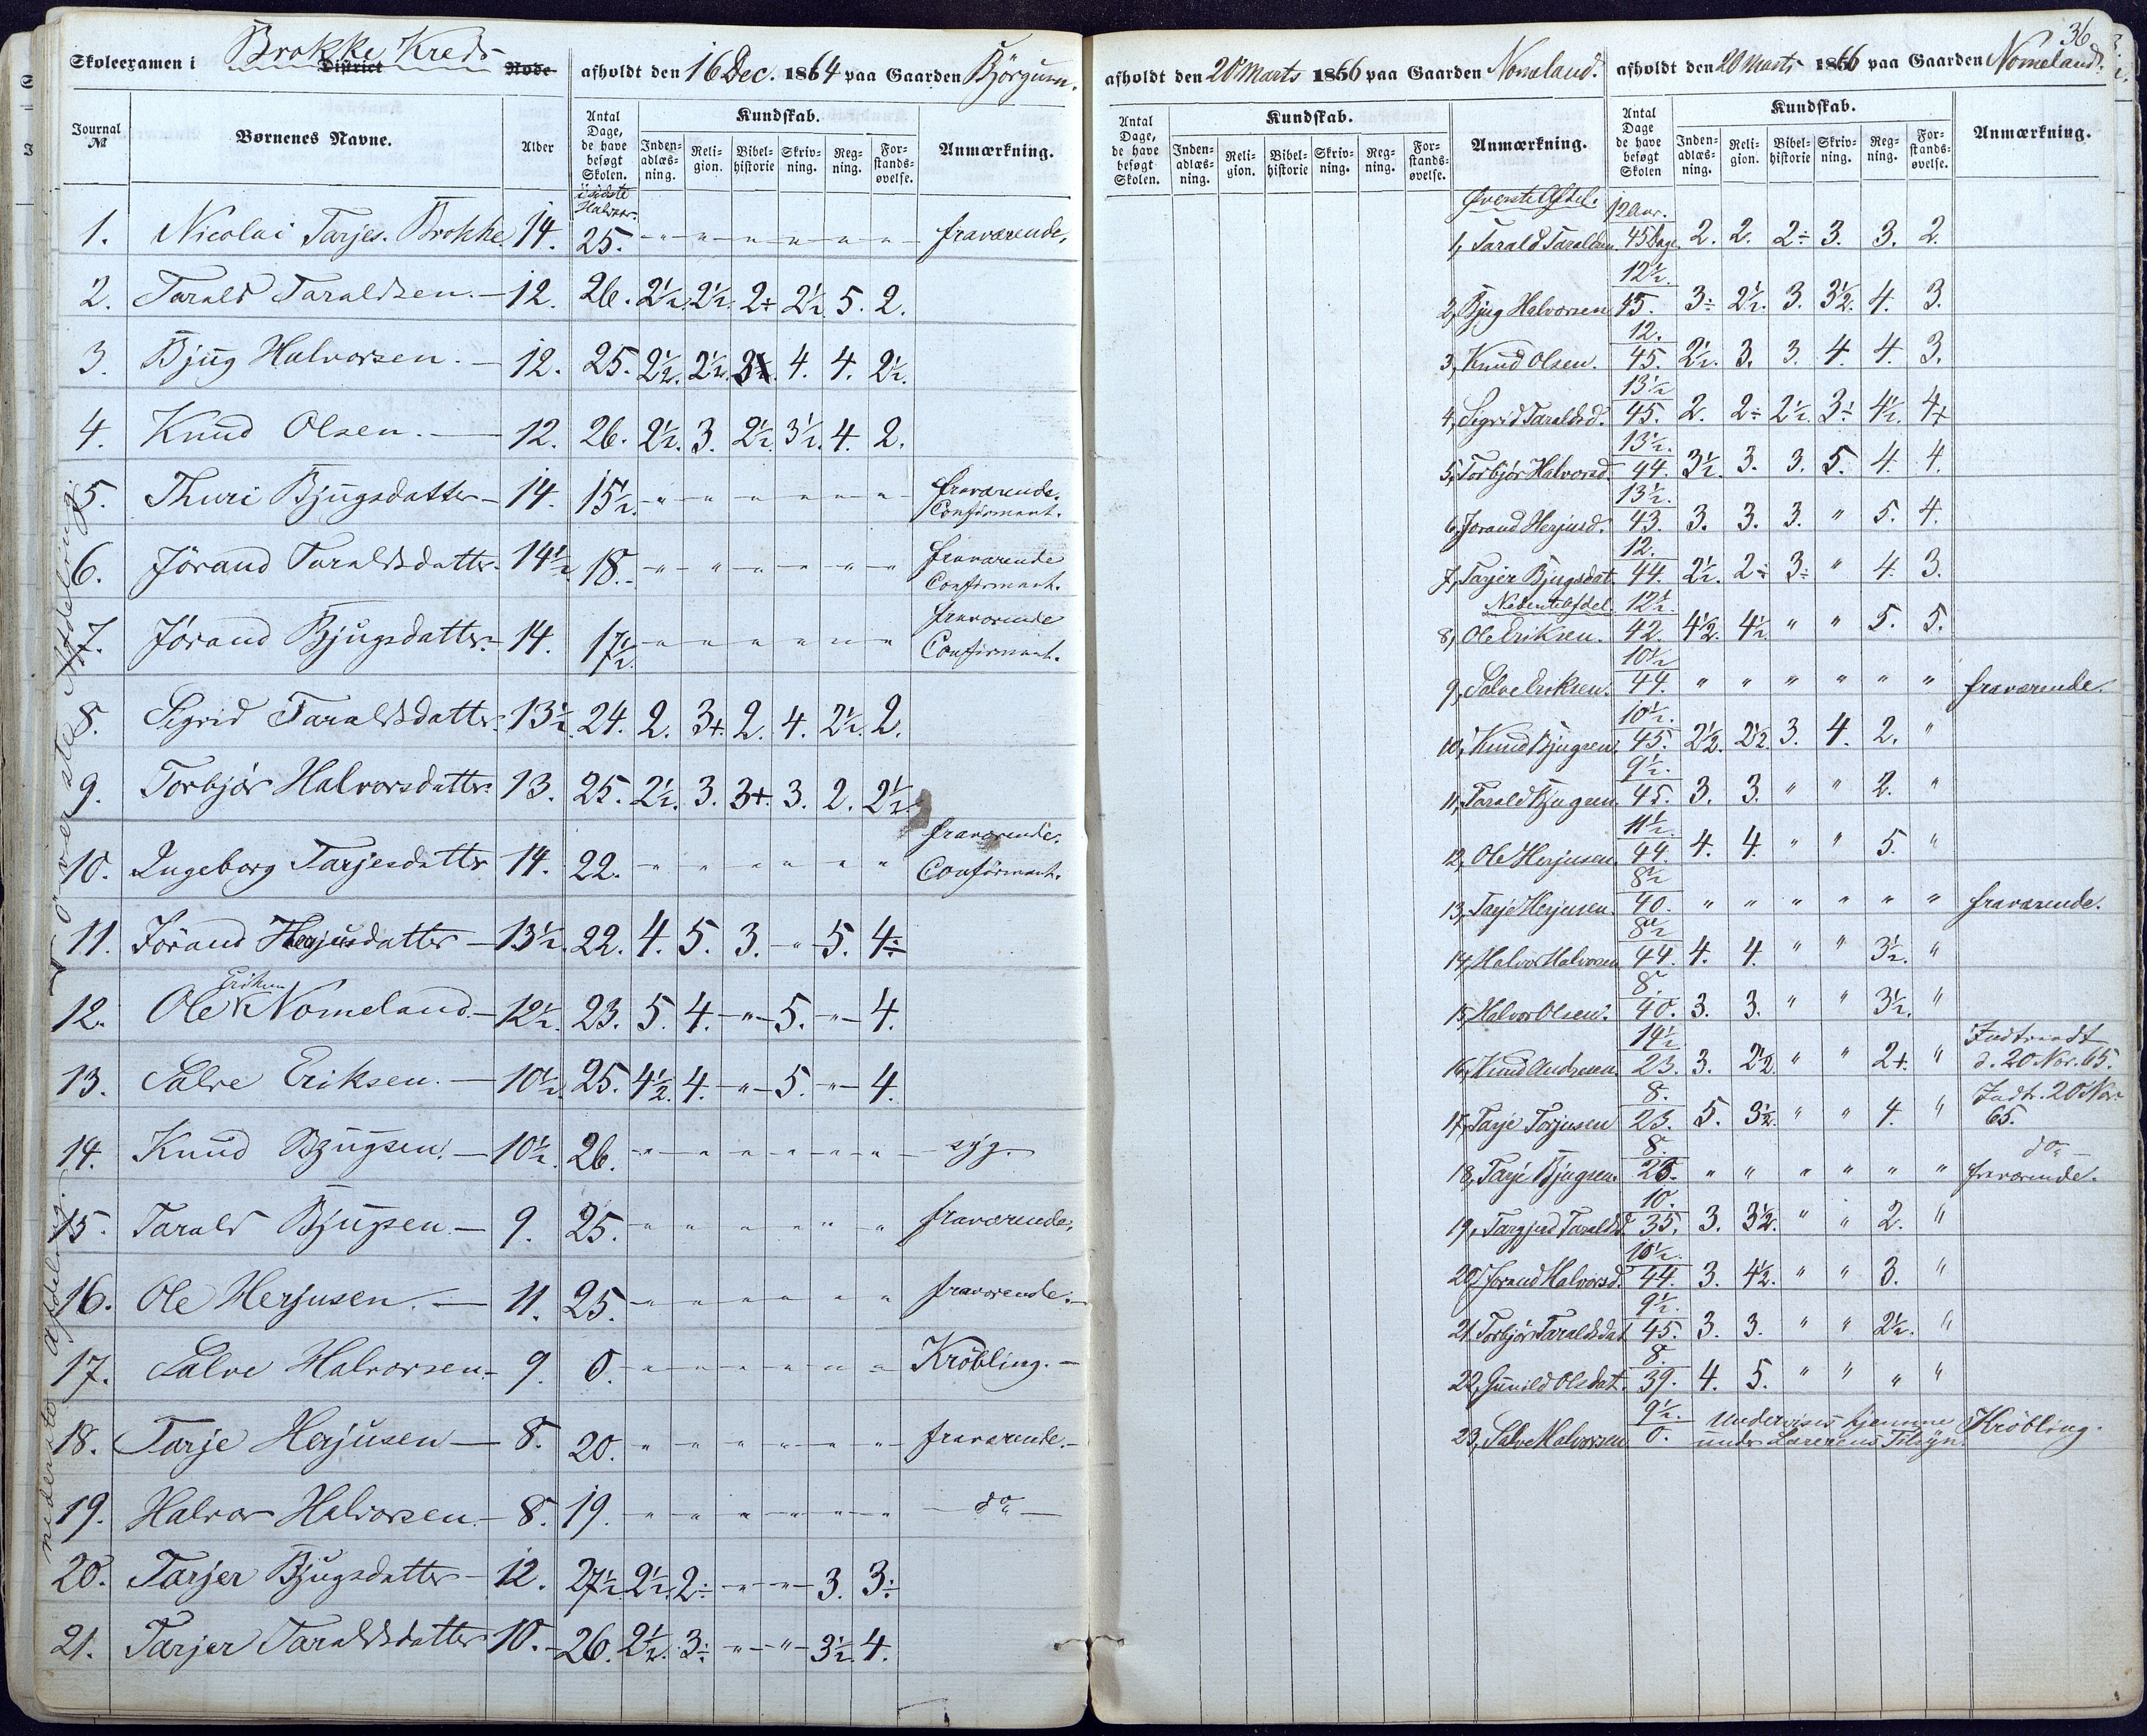 Skoleexamen i Brokke Kreds District Rode
afholdt den 16 Dec. 1864 paa Gaarden Björgum.
Journal № Børnenes Navne. Alder
Antal Dage, de have besøgt Skolen. i sidste Halvaar.
Kundskab.
Inden-adlæs-ning. Reli-gion. Bibel-historie Skriv-ning. Reg-ning. For-stands-øvelse. Anmærkning.
øverste Afdeling.
1. Nicolai Tarjes. Brokke 14. 25. " " " " " " fraværende.
2. Tarald Taraldsen. 12. 26. 2½. 2½. 2÷ 2½. 5. 2.
3. Bjug Halvorsen. 12. 25. 2½. 2½. 3 4. 4. 2½.
4. Knud Olsen. 12. 26. 2½. 3. 2½. 3½. 4. 2.
5. Thuri Bjugsdatter 14. 15½. " " " " " " fraværende. Confirmant.
6. Jörand Taraldsdatter 14½. 18. " " " " " " fraværende Confirmant.
7. Jörand Bjugsdatter 14. 17½. " " " " " " fraværende Confirmant.
8. Sigrid Taraldsdatter 13½. 24. 2. 3+. 2. 4. 2½. 2.
9. Torbjör Halvorsdatter 13. 25. 2½. 3. 3+. 3. 2. 2½.
10. Ingeborg Tarjesdatter 14. 22. " " " " " " fraværende. Confirmant.
11. Jörand Herjusdatter 13½. 22. 4. 5. 3. " 5. 4÷
12. Ole Eriksen Nomeland 12½. 23. 5. 4. " 5. " 4.
nederste Afdeling.
13. Salve Eriksen. 10½. 25. 4½. 4. " 5. " 4.
14. Knud Bjugsen. 10½. 26. " " " " " " syg.
15. Tarald Bjugsen 9. 25. " " " " " " fraværende.
16. Ole Herjusen. 11. 25. " " " " " " fraværende.
17. Salve Halvorsen 9. 0. " " " " " " Kröbling.
18. Tarje Herjusen 8. 20. " " " " " " fraværende.
19. Halvor Halvorsen 8. 19. " " " " " " do
20. Tarjer Bjugsdatter 12. 27½. 2½. 2÷ " " 3. 3÷
21. Tarjer Taraldsdatter 10. 26. 2½. 3÷ " " 3½. 4.
36
afholdt den 20 Marts 1866 paa Gaarden Nomeland.
Antal Dage, de have besøgt Skolen.
Kundskab.
Inden-adlæs-ning. Reli-gion. Bibel-historie Skriv-ning. Reg-ning. For-stands-øvelse. Anmærkning.
afholdt den 20 Marts 1866 paa Gaarden Nomeland.
Antal Dage de have besøgt Skolen
Kundskab.
Inden-adlæs-ning. Reli-gion. Bibel-historie Skriv-ning. Reg-ning. For-stands-øvelse. Anmærkning.
Øverste Afdel.
1, Tarald Taraldsen. 12 Aar. 45 Dage. 2. 2. 2÷ 3. 3. 2.
2, Bjug Halvorsen 12½. 45. 3÷ 2½. 3. 3½. 4. 3.
3, Knud Olsen. 12. 45. 2½. 3. 3. 4. 4. 3.
4, Sigrid Taraldsd. 13½ 45. 2. 2÷ 2½. 3÷ 4½. 4+
5, Torbjör Halvorsd. 13½. 44. 3½. 3. 3. 5. 4. 4.
6, Jorand Herjusd. 13½. 43. 3. 3. 3. " 5. 4.
7, Tarjer Bjugsdat. 12. 44. 2½. 2÷ 3÷ " 4. 3.
Nederste Afdel.
8, Ole Eriksen. 12½. 42. 4½. 4½. " " 5. 5.
9, Salve Eriksen. 10½ 44. " " " " " " fraværende.
10, Knud Bjugsen. 10½. 45. 2½. 2½. 3. 4. 2. "
11, Tarald Bjugsen. 9½. 45. 3. 3. " " 2. "
12, Ole Herjusen. 11½. 44. 4. 4. " " 5. "
13, Tarje Herjusen. 8½ 40. " " " " " " fraværende.
14, Halvor Halvorsen 8½ 44. 4. 4. " " 3½. "
15, Halvor Olsen. 8. 40. 3. 3. " " 3½. "
16, Knud Andresen. 14½ 23. 3. 2½. " " 2+. " Indtraadt d. 20 Nov. 65.
17, Tarje Torjusen 8. 23. 5. 3½. " " 4. " Indtr. 20 Nov. 65.
18, Tarje Bjugsen. 8. 25. " " " " " " do fraværende.
19, Targjerd Taraldsd. 10. 35. 3. 3½. " " 2. "
20, Jorand Halvorsd. 10½. 44. 3. 4½. " " 3. "
21. Torbjör Taraldsdat 9½. 45. 3. 3. " " 2½. "
22, Gunild Olsdat. 8. 39. 4. 5. " " " "
23, Salve Halvorsen 9½. 0. Undervises hjemme under Lærerens Tilsyn. Kröbling.